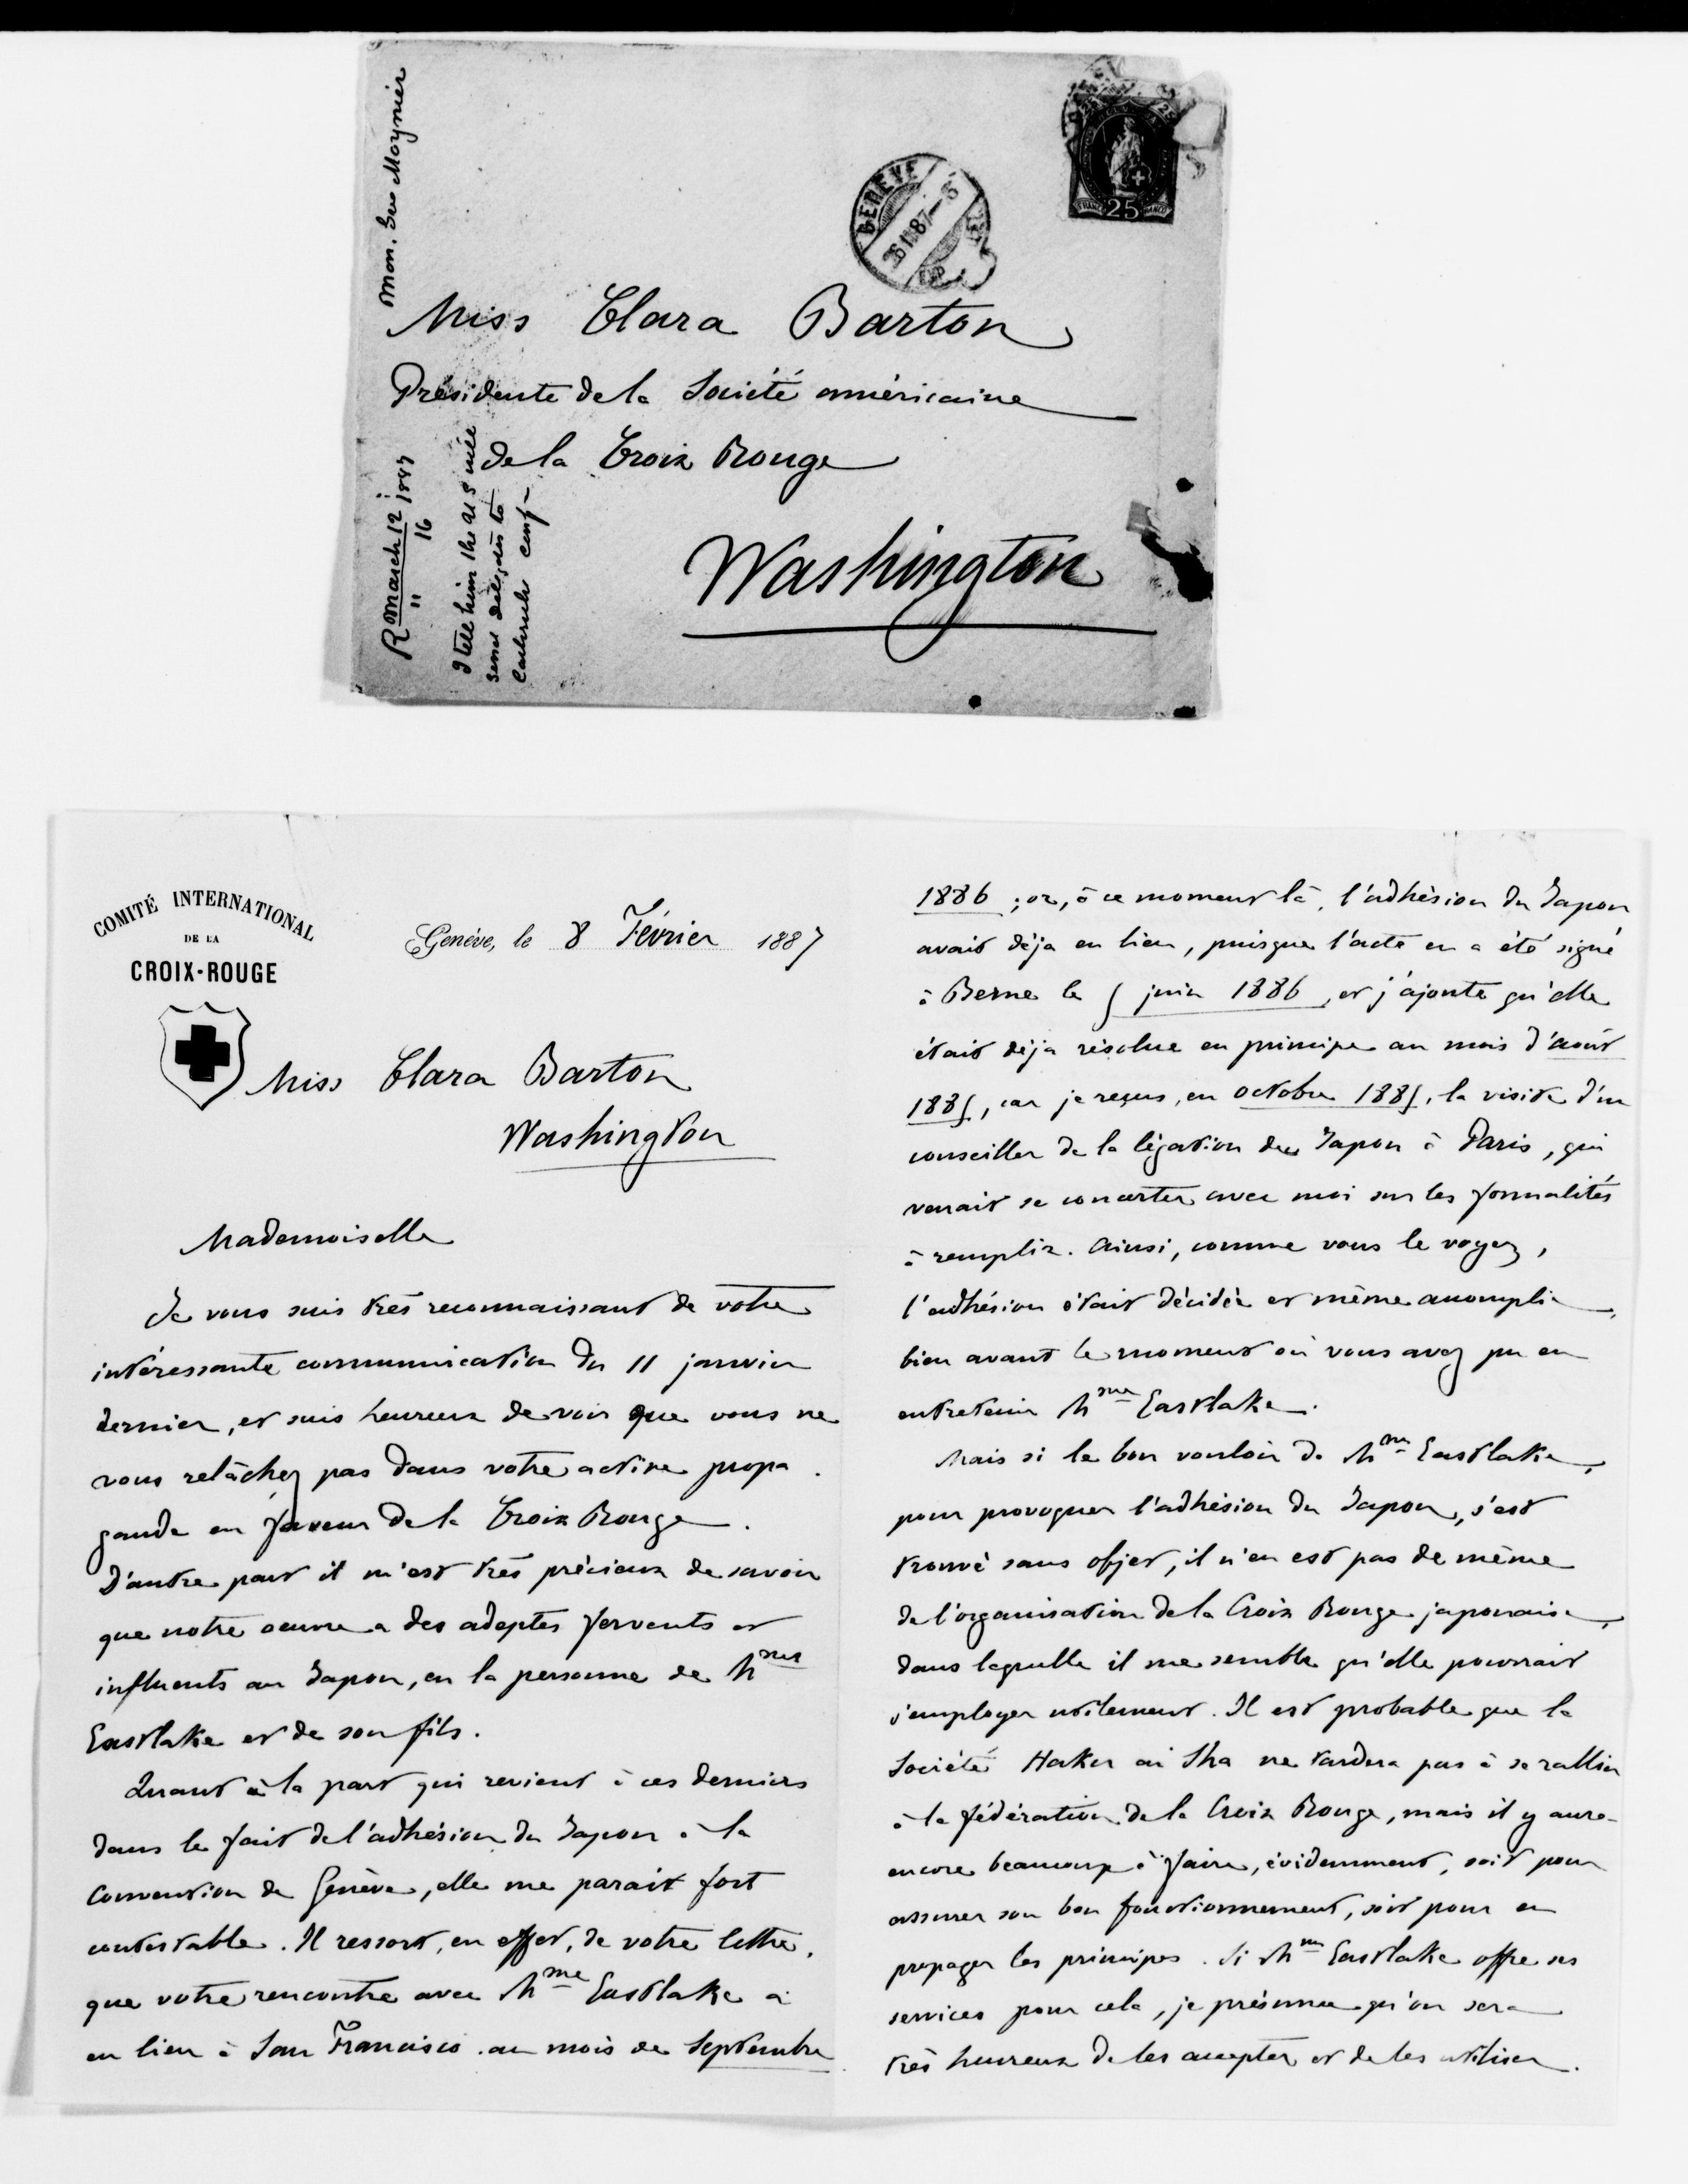 Mon. Gus Moynier
GENÈVE
87
25
FRANCO
FRANCO
Miss Clara Barton
Présidente de la Société américaine
de la Croix Rouge
Washington
R March 12 1887
" 16
I tell him the U S will
send delegates to
Carlsruhe conf-
COMITÉ INTERNATIONAL
DE LA
CROIX-ROUGE
Genève, le 8 Février 1887
Miss Clara Barton
Washington
Mademoiselle
Je vous suis très reconnaissant de votre
intéressante communication du 11 janvier
dernier, et suis heureux de voir que vous ne
vous relâchez pas dans votre active propa-
gande en faveur de la Croix Rouge.
D'autre part il m'est très précieux de savoir
que notre oeuvre a des adeptes fervents et
influents au Japon, en la personne de Mme
Eastlake et de son fils.
Quant à la part qui revient à ces derniers
dans le fait de l'adhésion du Japon à la
Convention de Genève, elle me parait fort
contestable. Il ressort, en effet, de votre lettre,
que votre rencontre avec Mme Eastlake a
eu lieu à San Francisco au mois de Septembre
1886 ; or, à ce moment là, l'adhésion du Japon
avait déja eu lieu, puisque l'acte en a été signé
à Berne le 5 juin 1886, et j'ajoute qu'elle
était déja résolue en principe au mois d'août
1885, car je reçus, en octobre 1885, la visite d'un
conseiller de la légation du Japon à Paris, qui
venait se concerter avec moi sur les formalités
à remplir. Ainsi, comme vous le voyez,
l'adhésion était décidée et même accomplie,
bien avant le moment où vous avez pu en
entretenir Mme Eastlake.
Mais si le bon vouloir de Mme Eastlake,
pour provoquer l'adhésion du Japon, s'est
trouvé sans objet, il n'en est pas de même
de l'organisation de la Croix Rouge japonaise,
dans laquelle il me semble qu'elle pourrait
s'employer utilement. Il est probable que la
Société Haku ai Sha ne tardera pas à se rallier
à la fédération de la Croix Rouge, mais il y aura
encore beaucoup à faire, évidemment, soit pour
assurer son bon fonctionnement, soit pour en
propager les principes. Si Mme Eastlake offre ses
services pour cela, je présume qu'on sera
très heureux de les accepter et de les utiliser.